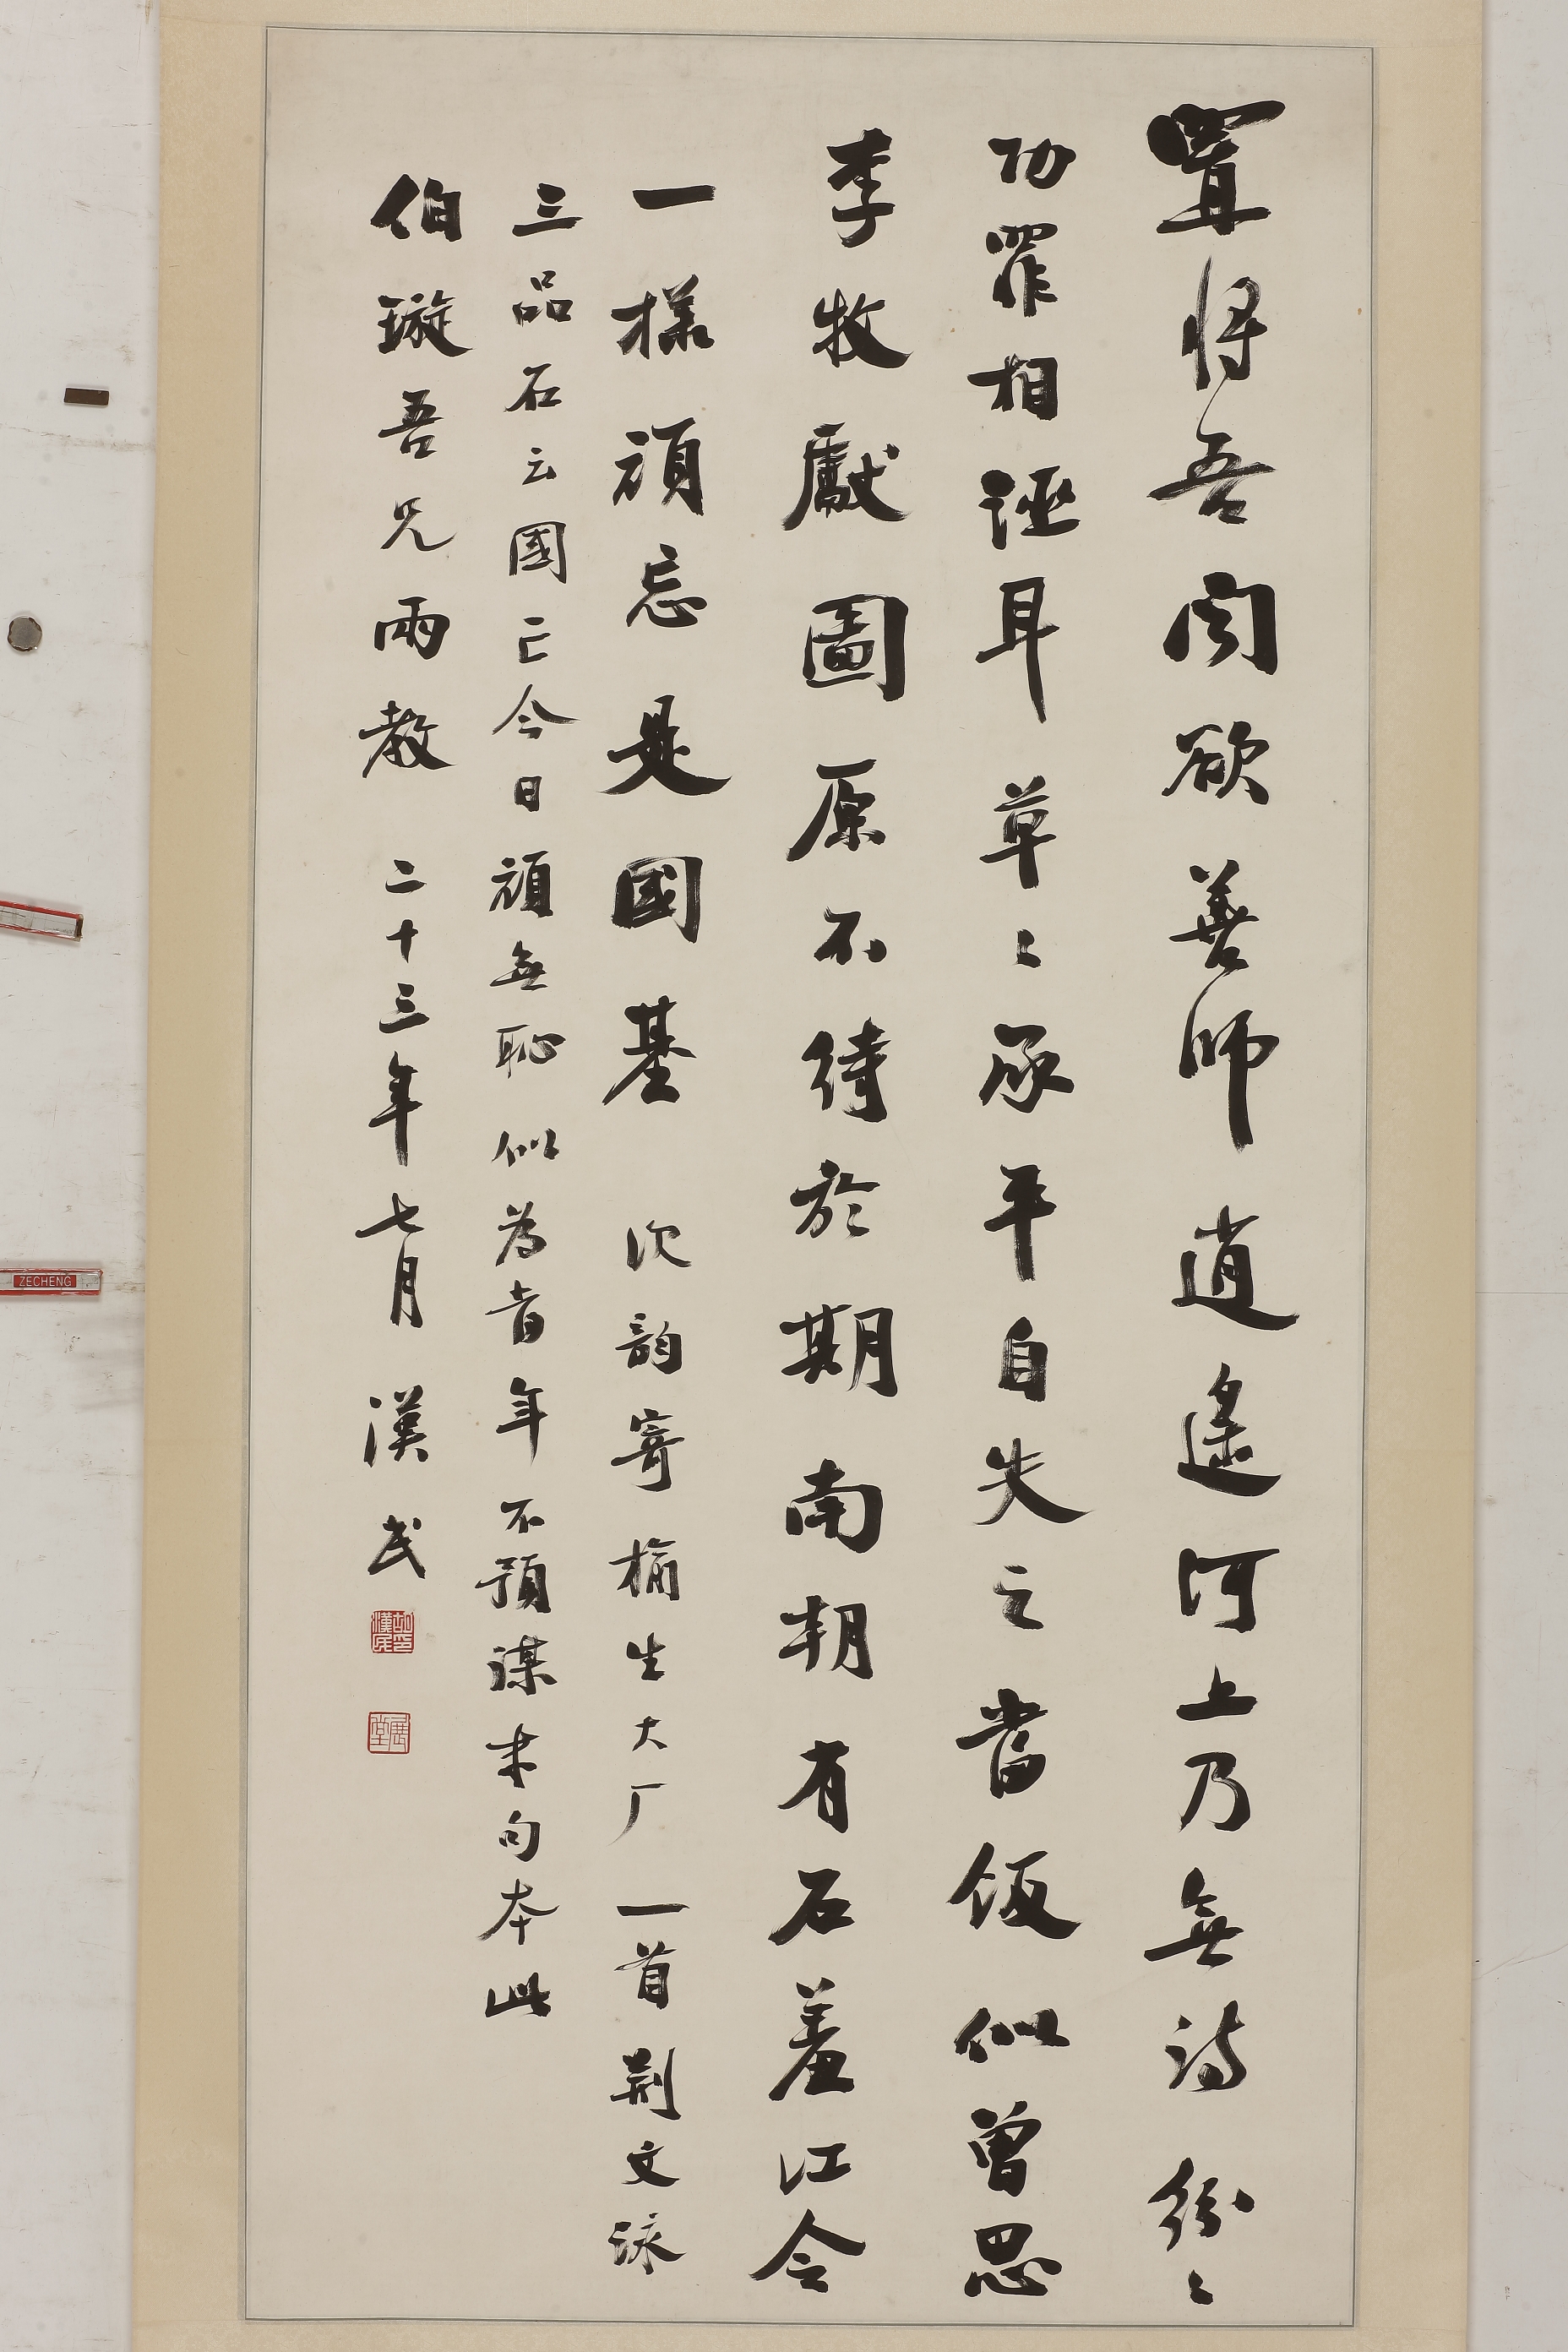 置將吾聞欲善師逍遙河上乃無詩紛〻
功罪相誣耳草〻承平自失之當飯似曾思
李牧獻圖原不待於期南朝有石羞江令
一樣頑忘是國基 次韻寄榆生大厂一首荊文詠
三品石云國亡今日頑無恥似為昔年不預謀末句本此
伯璇吾兄兩教 二十三年七月 漢民
胡漢民印
展堂
ZECHENG